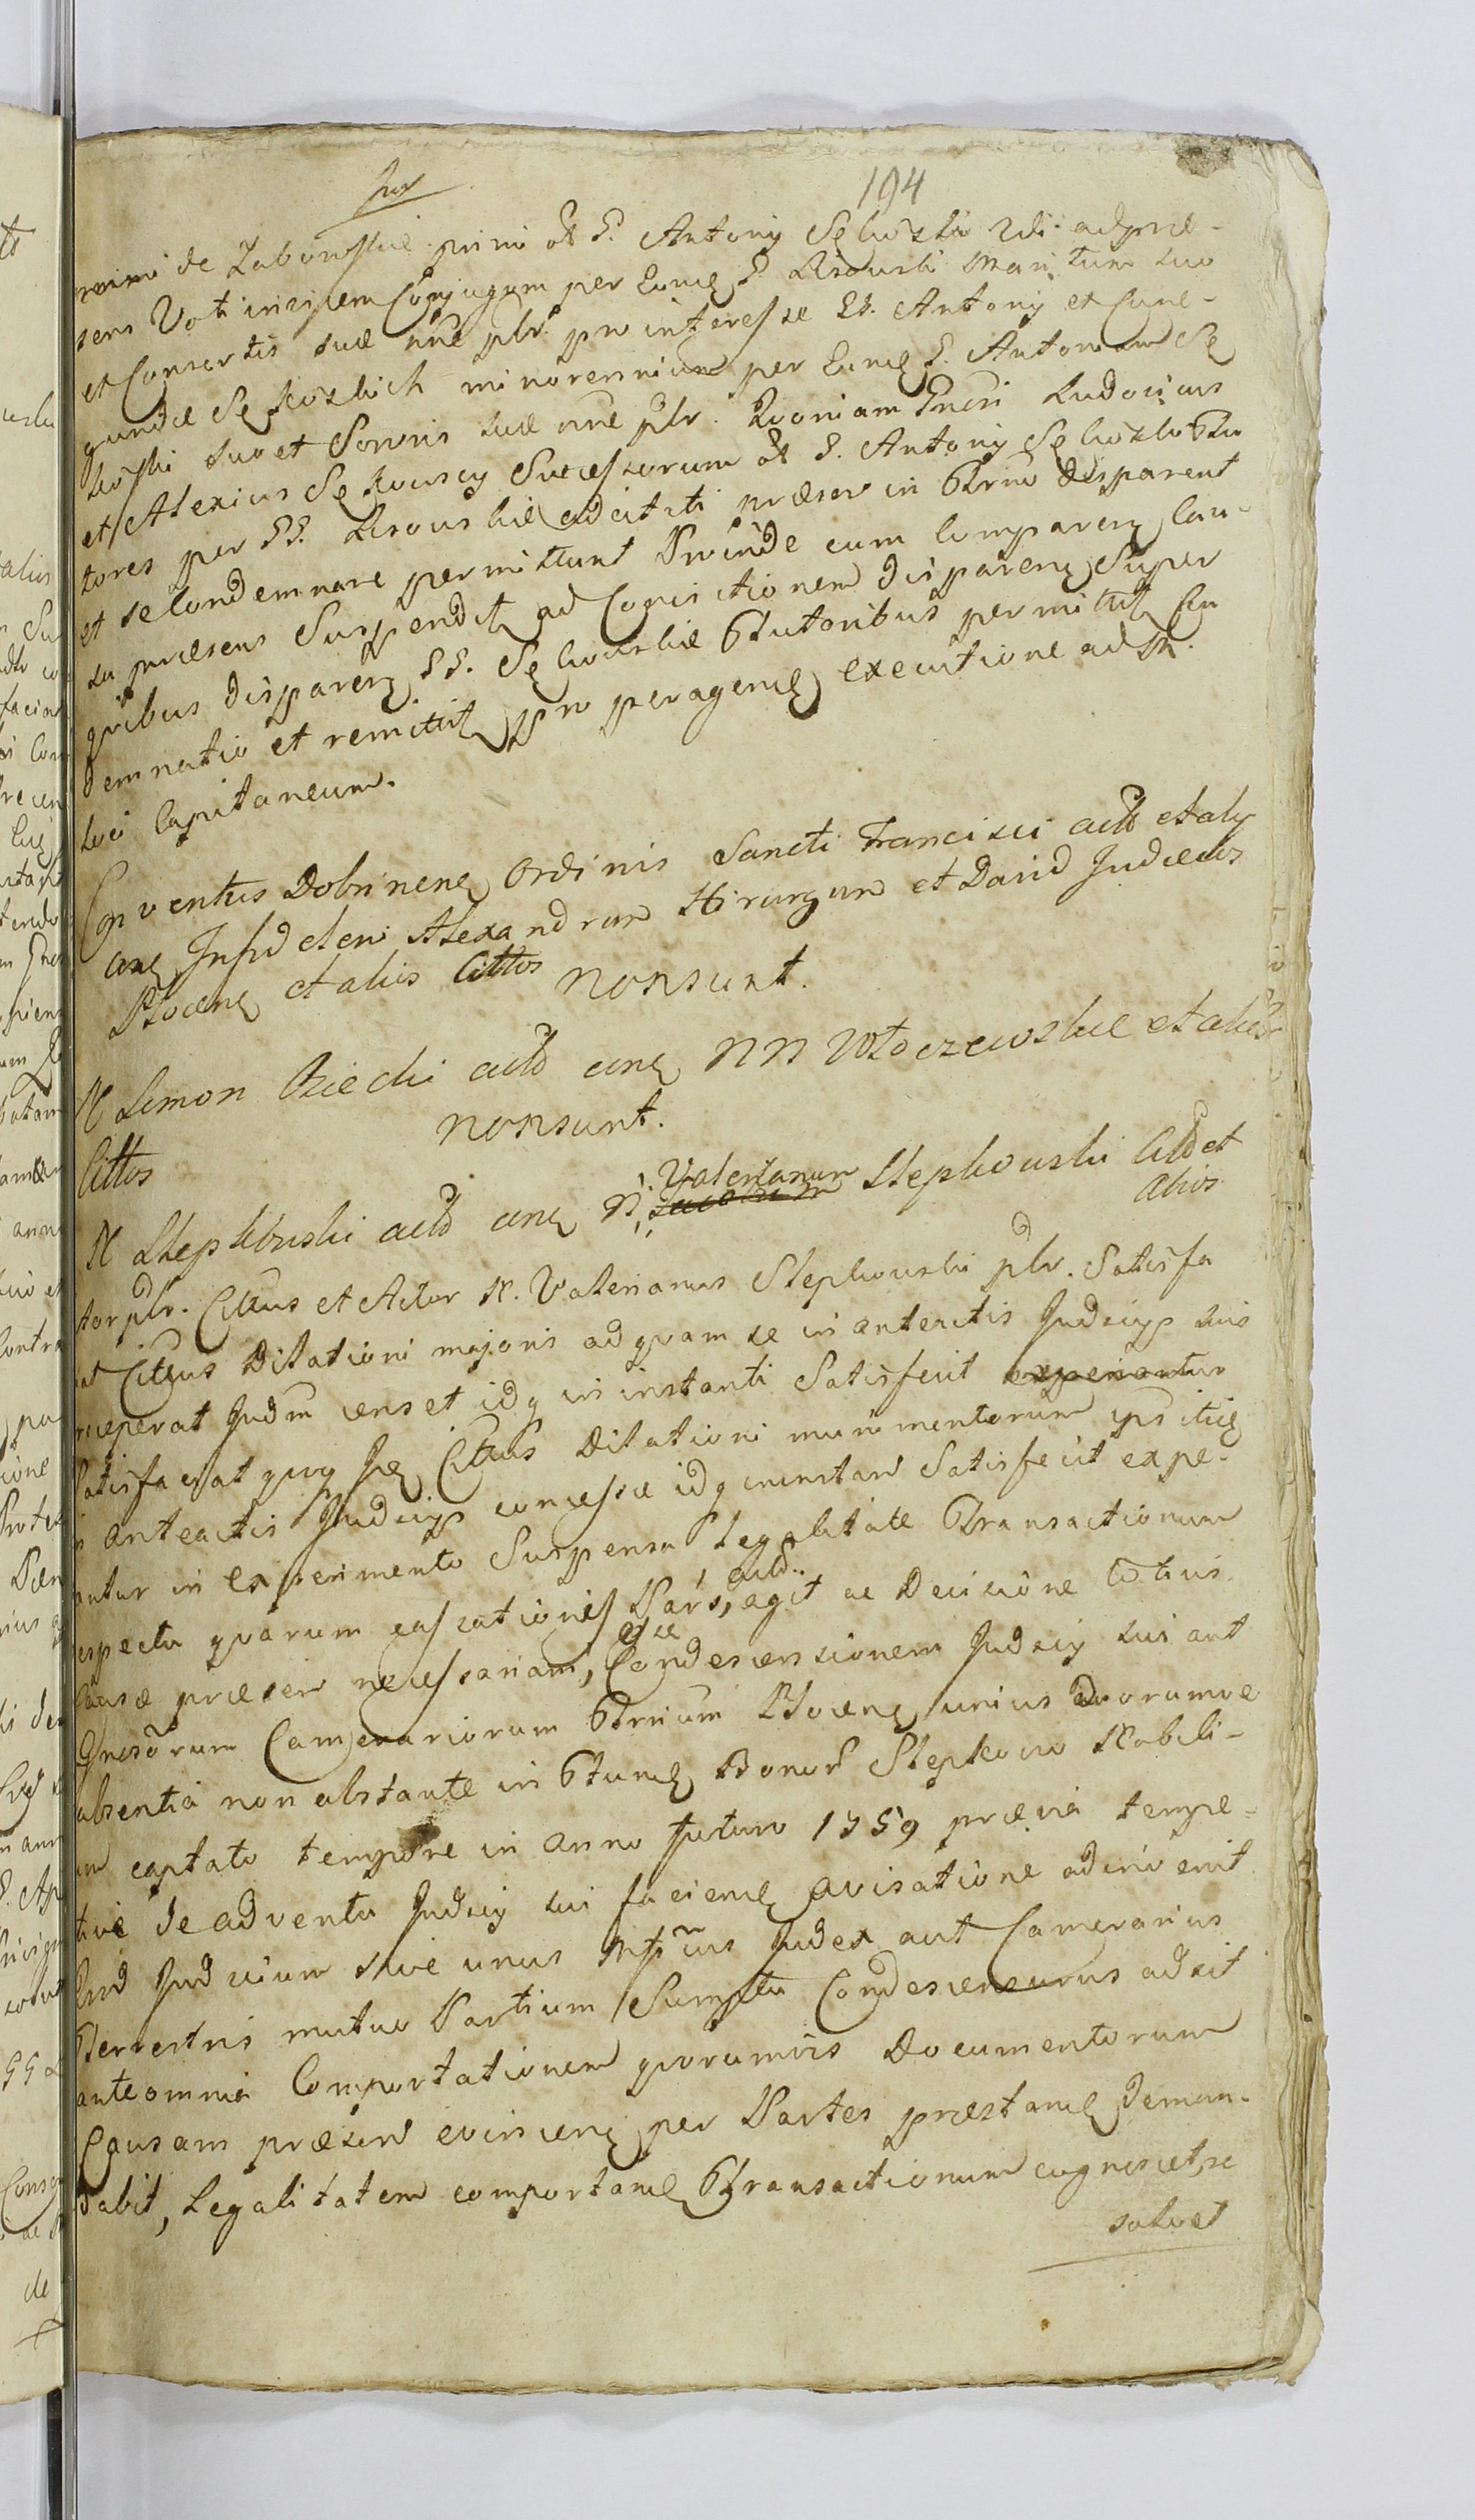 194
de Zaborskie primi ol G. Antonij Sękowski
sens Voti inipem Conjugum per Eund G. Lisouski Maritum suo
et Consortis suæ nne plr. pro interesse GG. Antonij et Cune-
gundæ Sękowskich minorennium per Eund G. Antonium Sę
kowski suo et Sororis suæ nne plr. Qvoniam Gnesi Ludovicus
et Alexius Sękouscy Successorum ol G. Antonij Sękowski Tu
tores per GG. Lisouskie adcitati præsen in Trno disparent
et se Condemnare permittunt Proinde cum Comparen Cau-
sa præsens Suspendit ad Convictionem disparen Super
qvibus disparen GG. Sękouskie Tutoribus permittit Con
demnatio et remittit pro peragen executione ad M.
Loci Capitaneum.
Conventus Dobrinen Ordinis Sancti Francisci actb et aly
cone Infidelem Alexandrum Hirurgum et David Judæus
Plocen et alios Cittos nonsunt.
N Simon actb cone NN Włoczewskie et alios
Cittos nonsunt.
N Stepkouski actb cone N. Valerianum Stepkouski Cittb et
alios
tor plr. Cittus et Actor N. Valerianus Stepkouski plr. Satisfa
at Cittus Dilationi majoris ad qvam se in anteactis Judicijs suis
receperat Judm cens et idq in instanti Satisfecit experiantur
Satisfaciat qvoq Cittus Dilationi munimentorum ipsi
anteactis Judicijs concessæ idq in instan Satisfecit expe-
antur in experimento Suspensa Legalitate Transactionum
espectu qvarum cassationis Pars, actb. agit ac Decisione totius
Causæ præsen necessariam, esse Condescensionem Judicij sui aut
Gnesorum Camerariorum Trrium Plocen unius duorumve
absentia non obstante in fund Bonor Stepkowo Nobili-
um captato tempore in anno futuro 1759 prævia tempe-
tive de adventu Judicij sui facien avisatione adinvenit
Qvod Judicium sive unus Mficus Judex aut Camerarius
Terrestris mutuo Partium Sumptu Condescensurus adsit
ante omnia Comportationem qvorumvis Documentorum
Causam præsen evincen per Partes præstand deman-
dabit, Legalitatem comportand Transactionum cognoscet, re
solvet